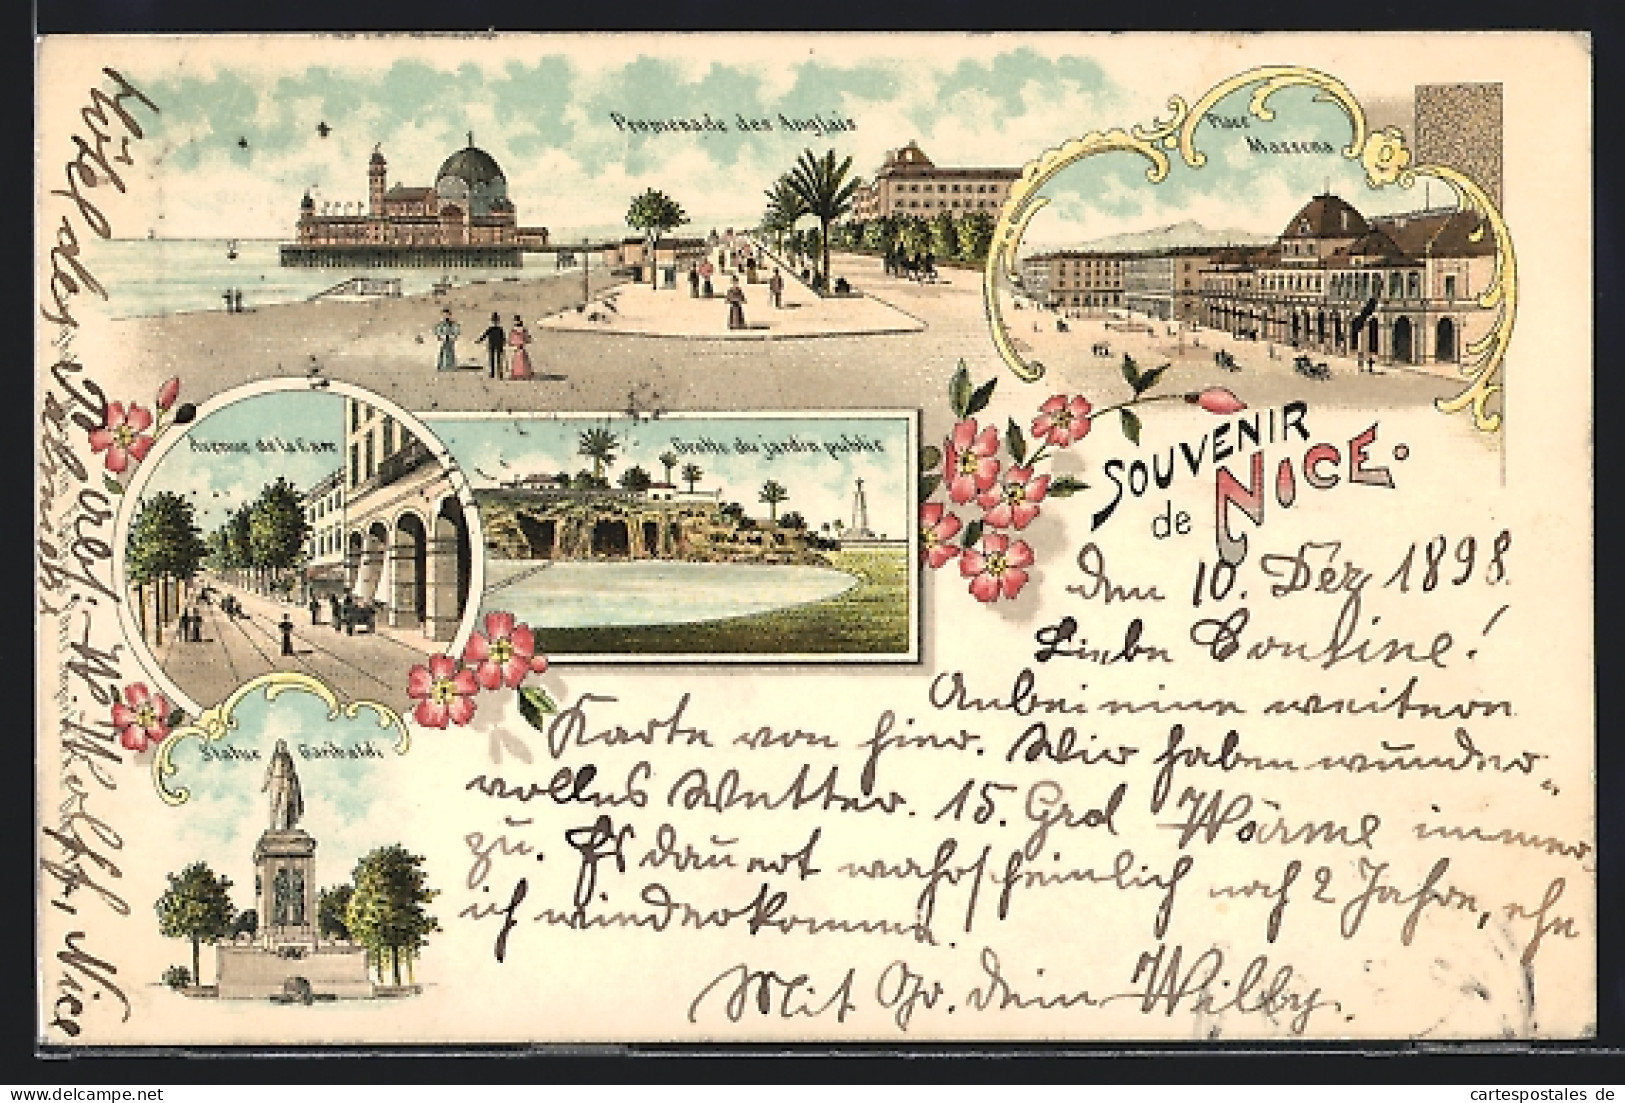 Promenade des Anglais
Place
Massena
Avenue de la Gare
Grotte du jardin public
Souvenir
de Nice.
Statue Garibaldi
den 10. Dez 1898.
Liebe Cousine!
Anbei eine weitere
Karte von hier. Wir haben wunder-
volles Wetter. 15. Grd Wärme immer
zu. Es dauert wahrscheinlich noch 2 Jahre, ehe
ich wiederkomme.
Mit Gr. dein Willy.
Nice
cartespostales de